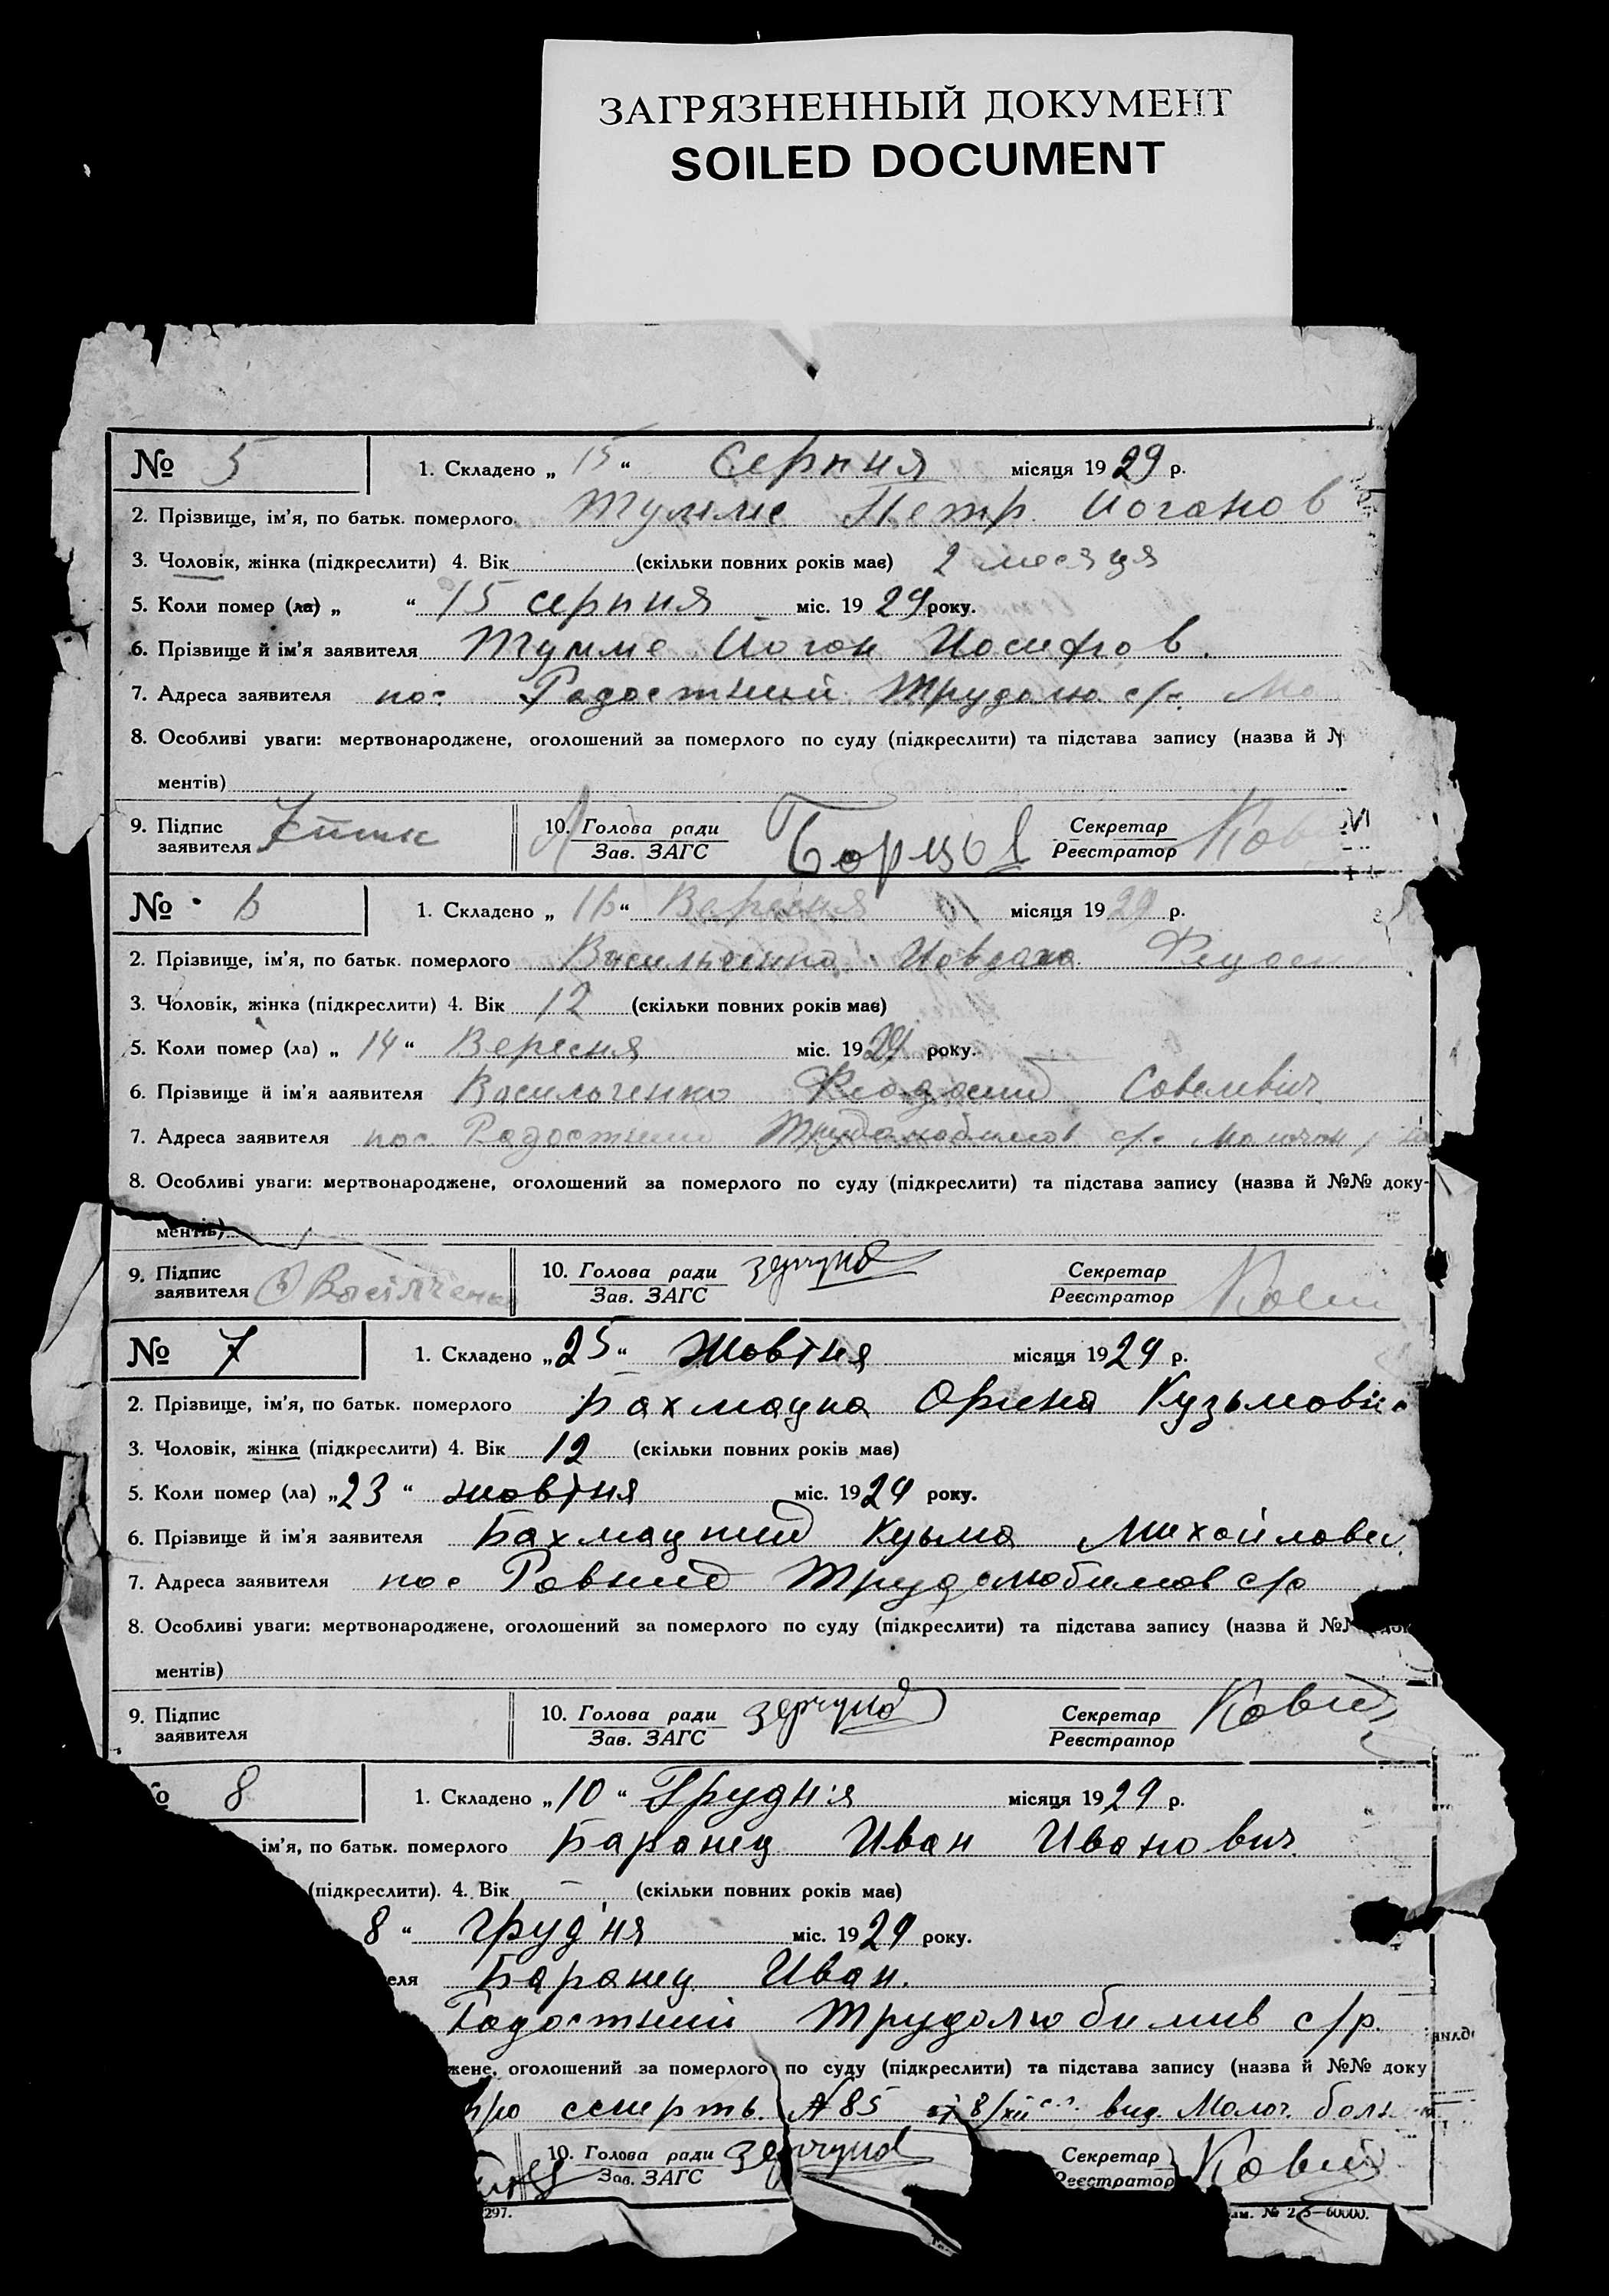 ЗАГРЯЗНЕННЫЙ ДОКУМЕНТ
SOILED DOCUMENT
№ 5 1. Складено „ 15 “ Серпня місяця 1929 р.
2. Прізвище, ім'я, по батьк. померлого Тумме Петр Йоганов
3. Чоловік, жінка (підкреслити) 4. Вік (скільки повних років має) 2 месяця
5. Коли помер (ла) „ “ 15 серпня міс. 1929 року.
6. Прізвище й ім'я заявителя Тумме Йоган Иосифов.
7. Адреса заявителя пос. Радостний Трудолю с/р. Мо
8. Особливі уваги: мертвонароджене, оголошений за померлого по суду (підкреслити) та підстава запису (назва й №
ментів)
9. Підпис заявителя 10. Голова ради Зав. ЗАГС Секретар Реєстратор
№ 6 1. Складено „ 16 “ Вересня місяця 1929 р.
2. Прізвище, ім'я, по батьк. померлого Васильченко
3. Чоловік, жінка (підкреслити) 4. Вік 12 (скільки повних років має)
5. Коли помер (ла) „ 14 “ Вересня міс. 1929 року.
6. Прізвище й ім'я заявителя Васильченко Феодосий Савелевич
7. Адреса заявителя пос. Радостний Трудолюбимов с/р.
8. Особливі уваги: мертвонароджене, оголошений за померлого по суду (підкреслити) та підстава запису (назва й №№ доку-
ментів)
9. Підпис заявителя 10. Голова ради Зав. ЗАГС Секретар Реєстратор
№ 7 1. Складено „25“ Жовтня місяця 1929 р.
2. Прізвище, ім'я, по батьк. померлого Бахмацка Орина Кузьмовна
3. Чоловік, жінка (підкреслити) 4. Вік 12 (скільки повних років має)
5. Коли помер (ла) „23“ жовтня міс. 1929 року.
6. Прізвище й ім'я заявителя Бахмацкий Кузьма Михайлович
7. Адреса заявителя пос Ровний Трудолюбимов с/р
8. Особливі уваги: мертвонароджене, оголошений за померлого по суду (підкреслити) та підстава запису (назва й №
ментів)
9. Підпис заявителя 10. Голова ради Зав. ЗАГС Секретар Реєстратор
8 1. Складено „10“ Грудня місяця 1929 р.
ім'я, по батьк. померлого Баранец Иван Иванович.
(підкреслити). 4. Вік – (скільки повних років має)
8 “ груд'ня міс. 1929 року.
еля Баранец Иван.
Радостний Трудолюбимив с/р.
жене, оголошений за померлого по суду (підкреслити) та підстава запису (назва й №№ доку
про смерть. № 85 від 8/XII с.г. вид. Молоч. боль
10. Голова ради Зав. ЗАГС Секретар Реєстратор
297.